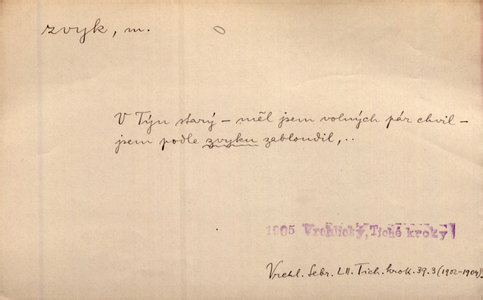 zvyk, m.
V Týn starý – měl jsem volných pár chvil –
jsem podle zvyku zabloudil,..
1905 Vrchlický, Tiché kroky
Vrchl. Sebr. LII. Tich. krok. 39. 3 (1902–1904).